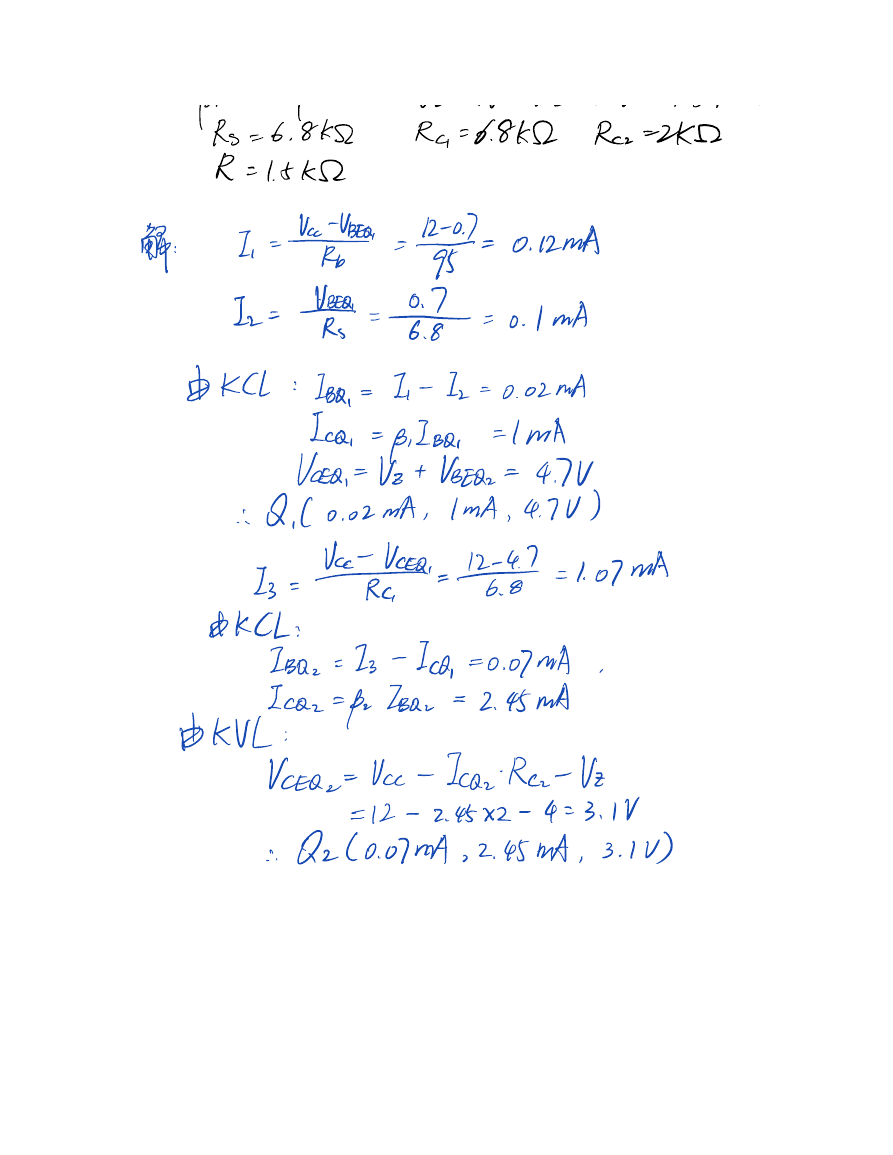 Rs = 6.8kΩ Rc₁ = 6.8kΩ Rc₂ = 2kΩ
R = 1.5kΩ
解: I₁ = (Vcc - VBEQ₁)/Rb = (12-0.7)/95 = 0.12mA
I₂ = VBEQ₁/Rs = 0.7/6.8 = 0.1mA
由KCL: IBQ₁ = I₁ - I₂ = 0.02mA
ICQ₁ = β₁IBQ₁ = 1mA
VCEQ₁ = Vz + VBEQ₂ = 4.7V
∴ Q₁(0.02mA, 1mA, 4.7V)
I₃ = (Vcc - VCEQ₁)/Rc₁ = (12-4.7)/6.8 = 1.07mA
由KCL:
IBQ₂ = I₃ - ICQ₁ = 0.07mA
ICQ₂ = β₂ IBQ₂ = 2.45mA
由KVL:
VCEQ₂ = Vcc - ICQ₂·Rc₂ - Vz
= 12 - 2.45×2 - 4 = 3.1V
∴ Q₂(0.07mA, 2.45mA, 3.1V)